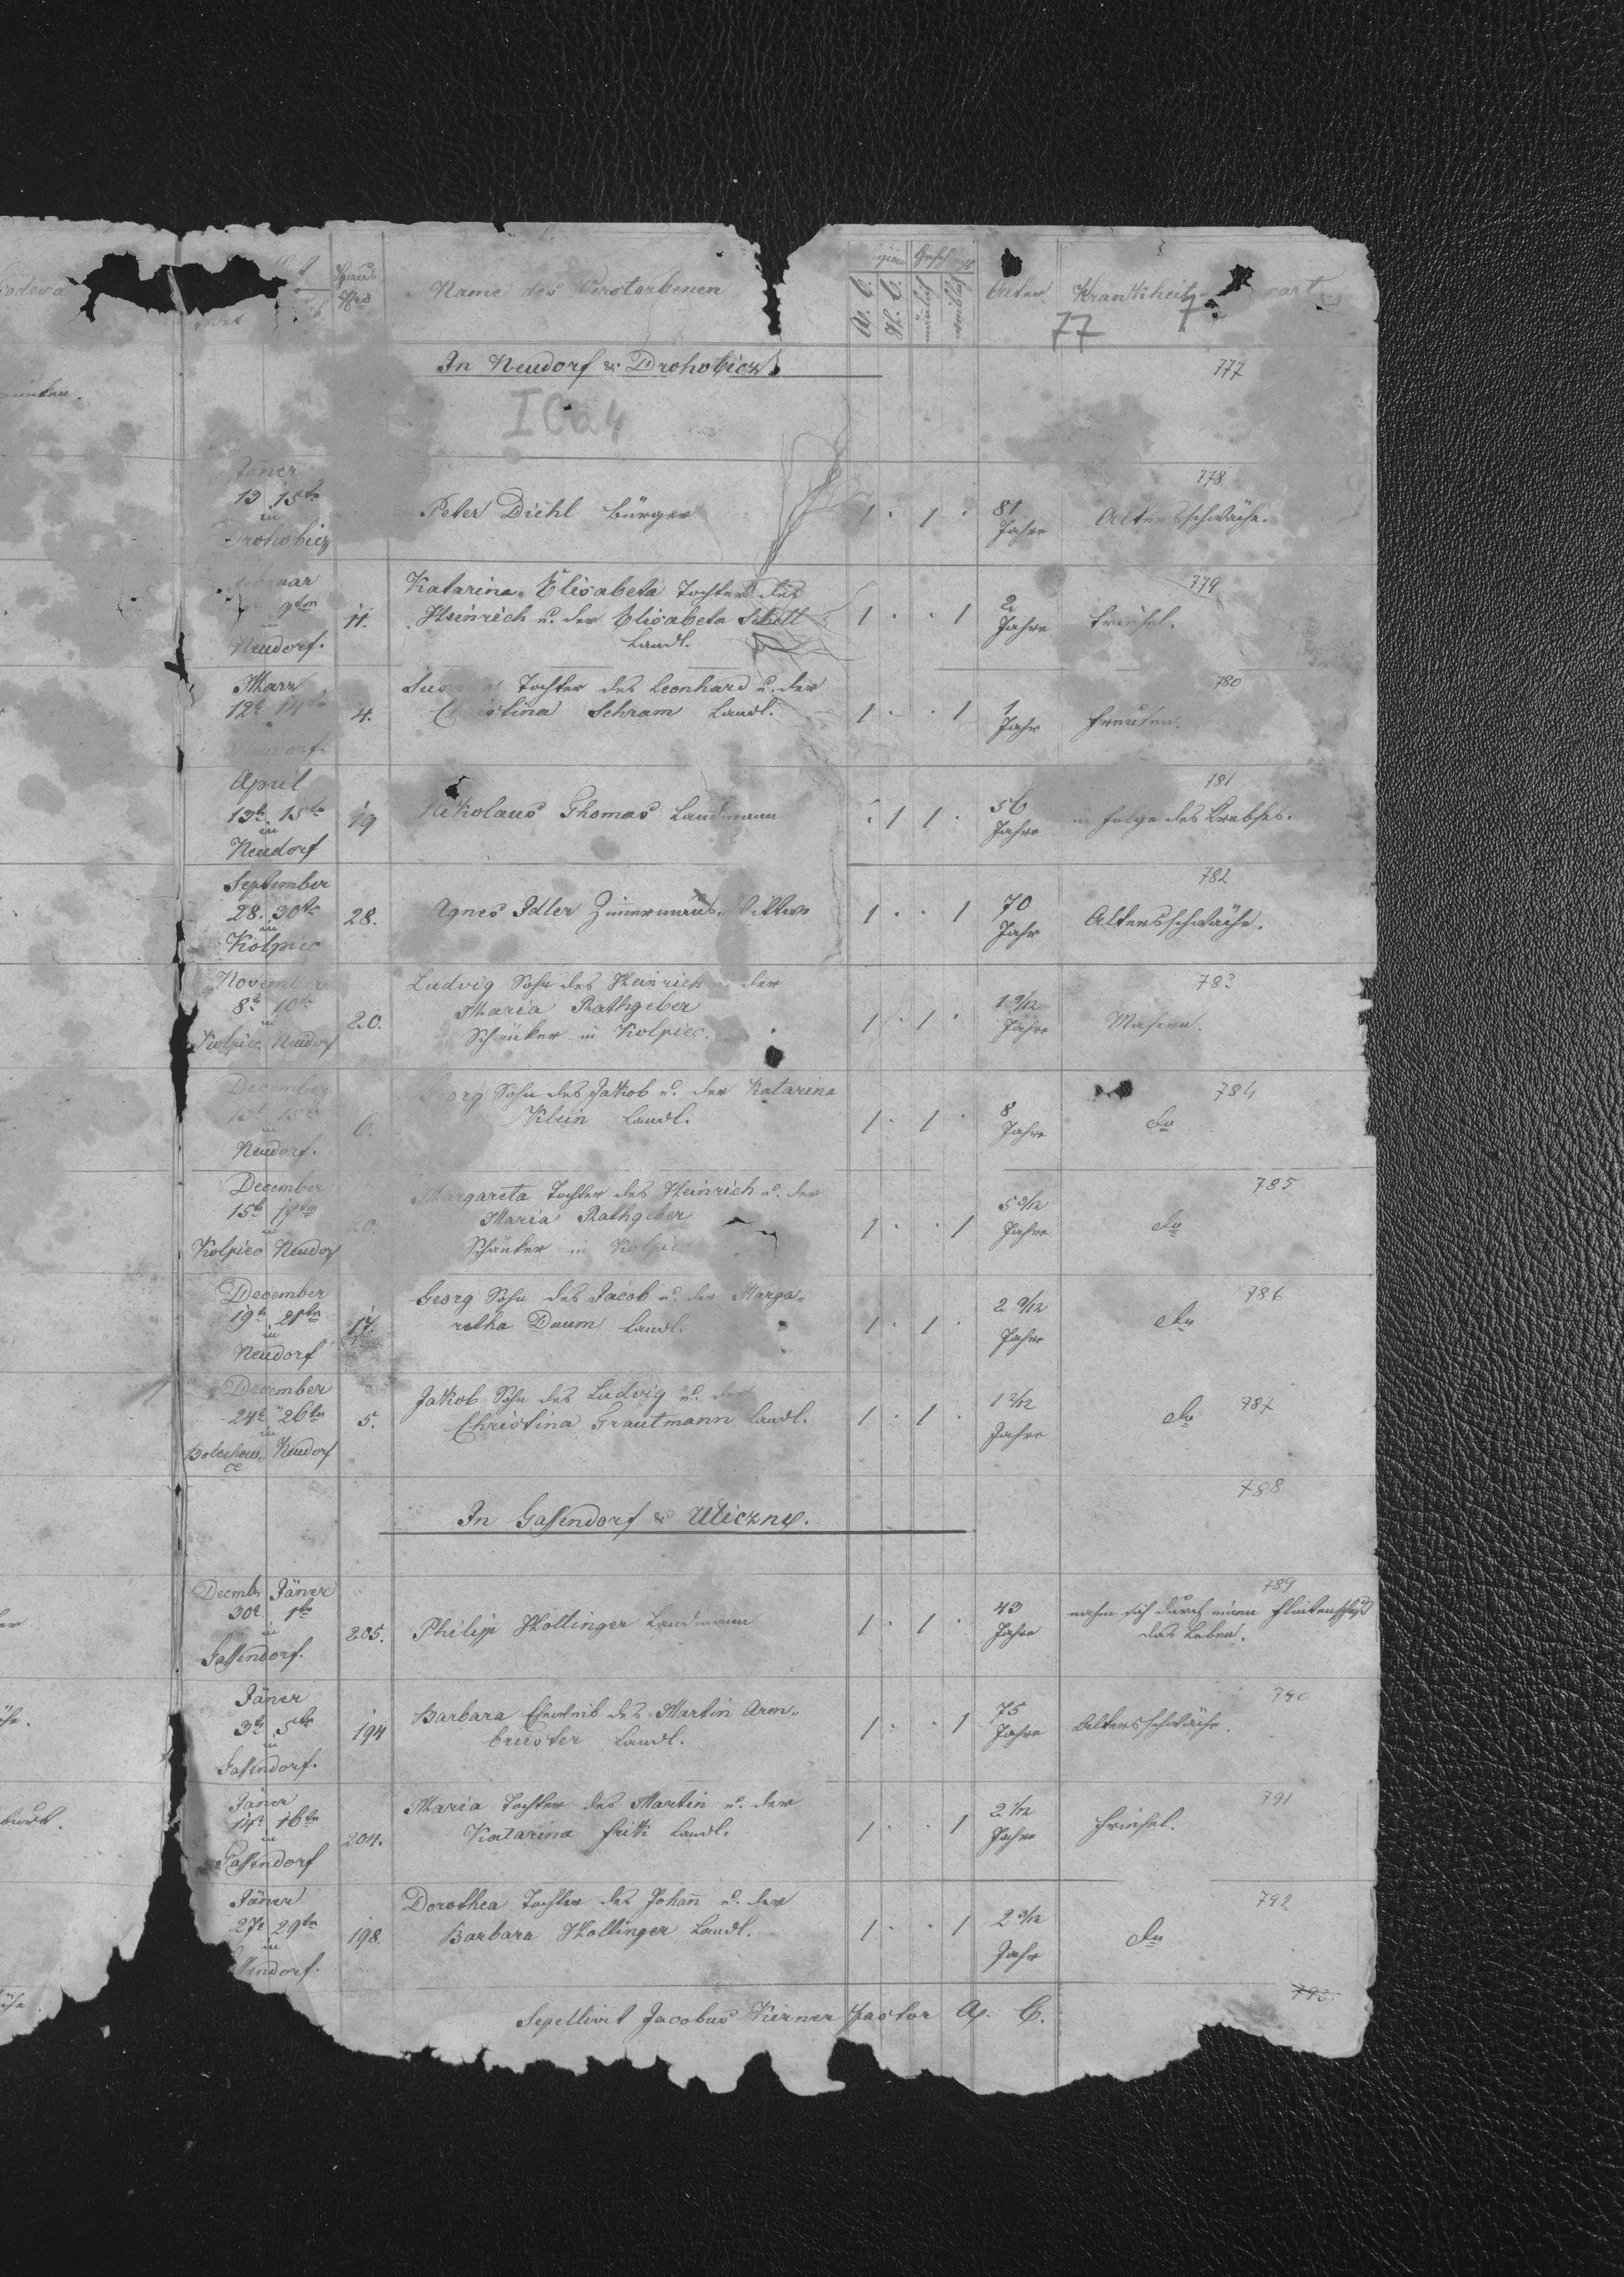 Haus
Nro
Name des Verstorbenen
A. C.
H. C.
männlich
weiblich
Alter
Krankheit
art
77
7
In Neudorf & Drohobicz
777
ICa4
Jäner
13 15te
in
Drohobicz
Peter Diehl Bürger
1 . 1 .
81
Jahre
778
Altersschwäche.
Februar
9ten
in
Neudorf.
11.
Katarina Elisabeta Tochter des
Heinrich u. der Elisabeta Schott
Landl.
1 . . 1
2
Jahre
779
Friesel.
März
12t 14te
Neudorf
4.
Tochter des Leonhard u. der
Christina Schram Landl.
1 . . 1
1
Jahr
780
April
13t 15te
in
Neudorf
19
Nikolaus Thomas Landmann
. 1 1 .
56
Jahre
781
in Folge des Krebses.
September
28. 30te
in
Kolpiec
28.
Agnes Idler Zimermanns Wittwe
1 . . 1
70
Jahr
782
Altersschwäche.
November
8t 10te
in
Kolpiec Neudorf
20.
Ludvig Sohn des Heinrich u. der
Maria Rathgeber
Schänker in Kolpiec.
1 . 1 .
1 9/12
Jahre
783
Masern.
December
13t 15te
in
Neudorf.
6.
Georg Sohn des Jakob u. der Katarina
Klein Landl.
1 . 1 .
8
Jahre
784
do
December
15t 17ten
in
Kolpiec Neudorf
20.
Margareta Tochter des Heinrich u. der
Maria Rathgeber
Schänker in Kolpiec
1 . . 1
5 3/12
Jahre
785
do
December
19t 21ten
in
Neudorf
17.
Georg Sohn des Jacob u. der Marga-
retha Daum Landl.
1 . 1 .
2 9/12
Jahre
786
do
December
24t 26ten
in
Bolechow- Neudorf
ce
5.
Jakob Sohn des Ludvig u. der
Christina Grautmann Landl.
1 . 1 .
1 2/12
Jahre
787
do
788
In Gassendorf & Uliczne.
Decmb. Jäner
30t 1ten
in
Gassendorf.
205.
Philip Hollinger Landmann
1 . 1 .
43
Jahre
789
nahm sich durch einen Flintenschuß
das Leben.
Jäner
3t 5te
in
Gassendorf.
194
Barbara Eheweib des Martin Arm-
bruster Landl.
1 . . 1
75
Jahre
790
Altersschwäche.
Jäner
14t 16te
in
Gassendorf
204.
Maria Tochter des Martin u. der
Katarina Frik Landl.
1 . . 1
2 1/12
Jahre
791
Friesel.
Jäner
27t 29te
in
ssendorf.
198.
Dorothea Tochter des Johan̄ u. der
Barbara Hollinger Landl.
1 . . 1
2 3/12
Jahr
792
do
793.
Sepelivit Jacobus Kerner Pastor A. C.